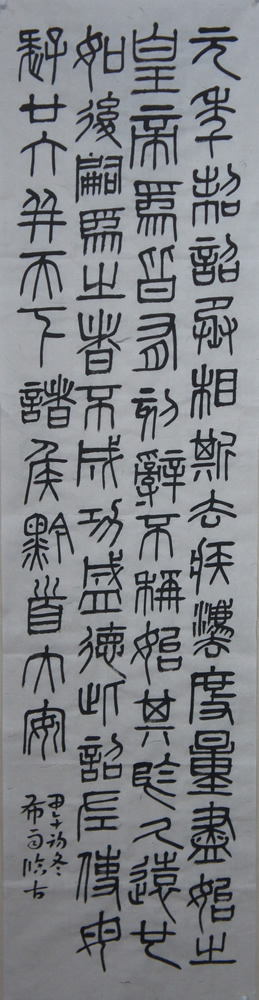 元年制詔丞相斯去疾灋度量盡始之
皇帝為皆有刻辭不稱始其於久遠也
如後嗣為之者不成功盛德此詔左使毋
疑廿六并天下諸侯黔首大安
甲午初冬
雨臨古